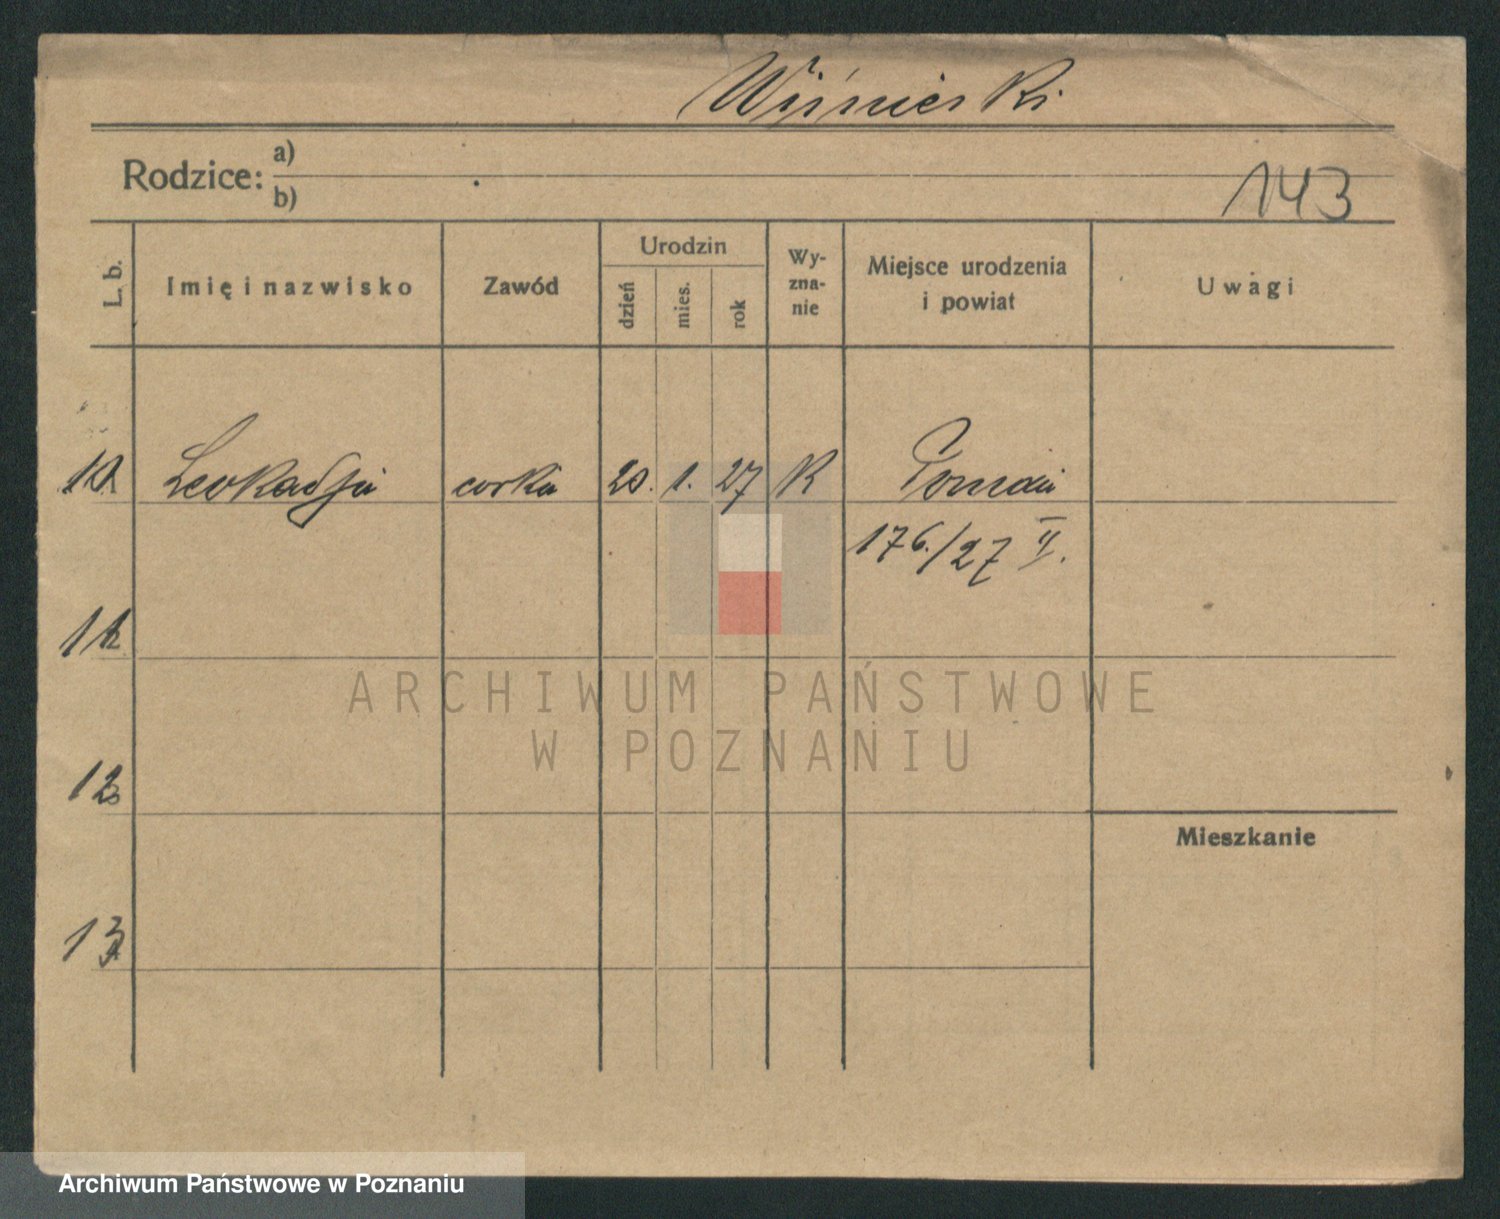 Wiśnieski
Rodzice: a)
b)
143
L. b.
Imię i nazwisko
Zawód
Urodzin
dzień
mies.
rok
Wy-
zna-
nie
Miejsce urodzenia
i powiat
Uwagi
10 Leokadja corka 20. 1. 27 K Poznań
176./27 II.
11
12
13
Mieszkanie
ARCHIWUM PAŃSTWOWE
W POZNANIU
Archiwum Państwowe w Poznaniu